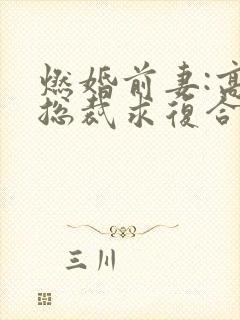 燃婚前妻:高
总裁求復合
三川